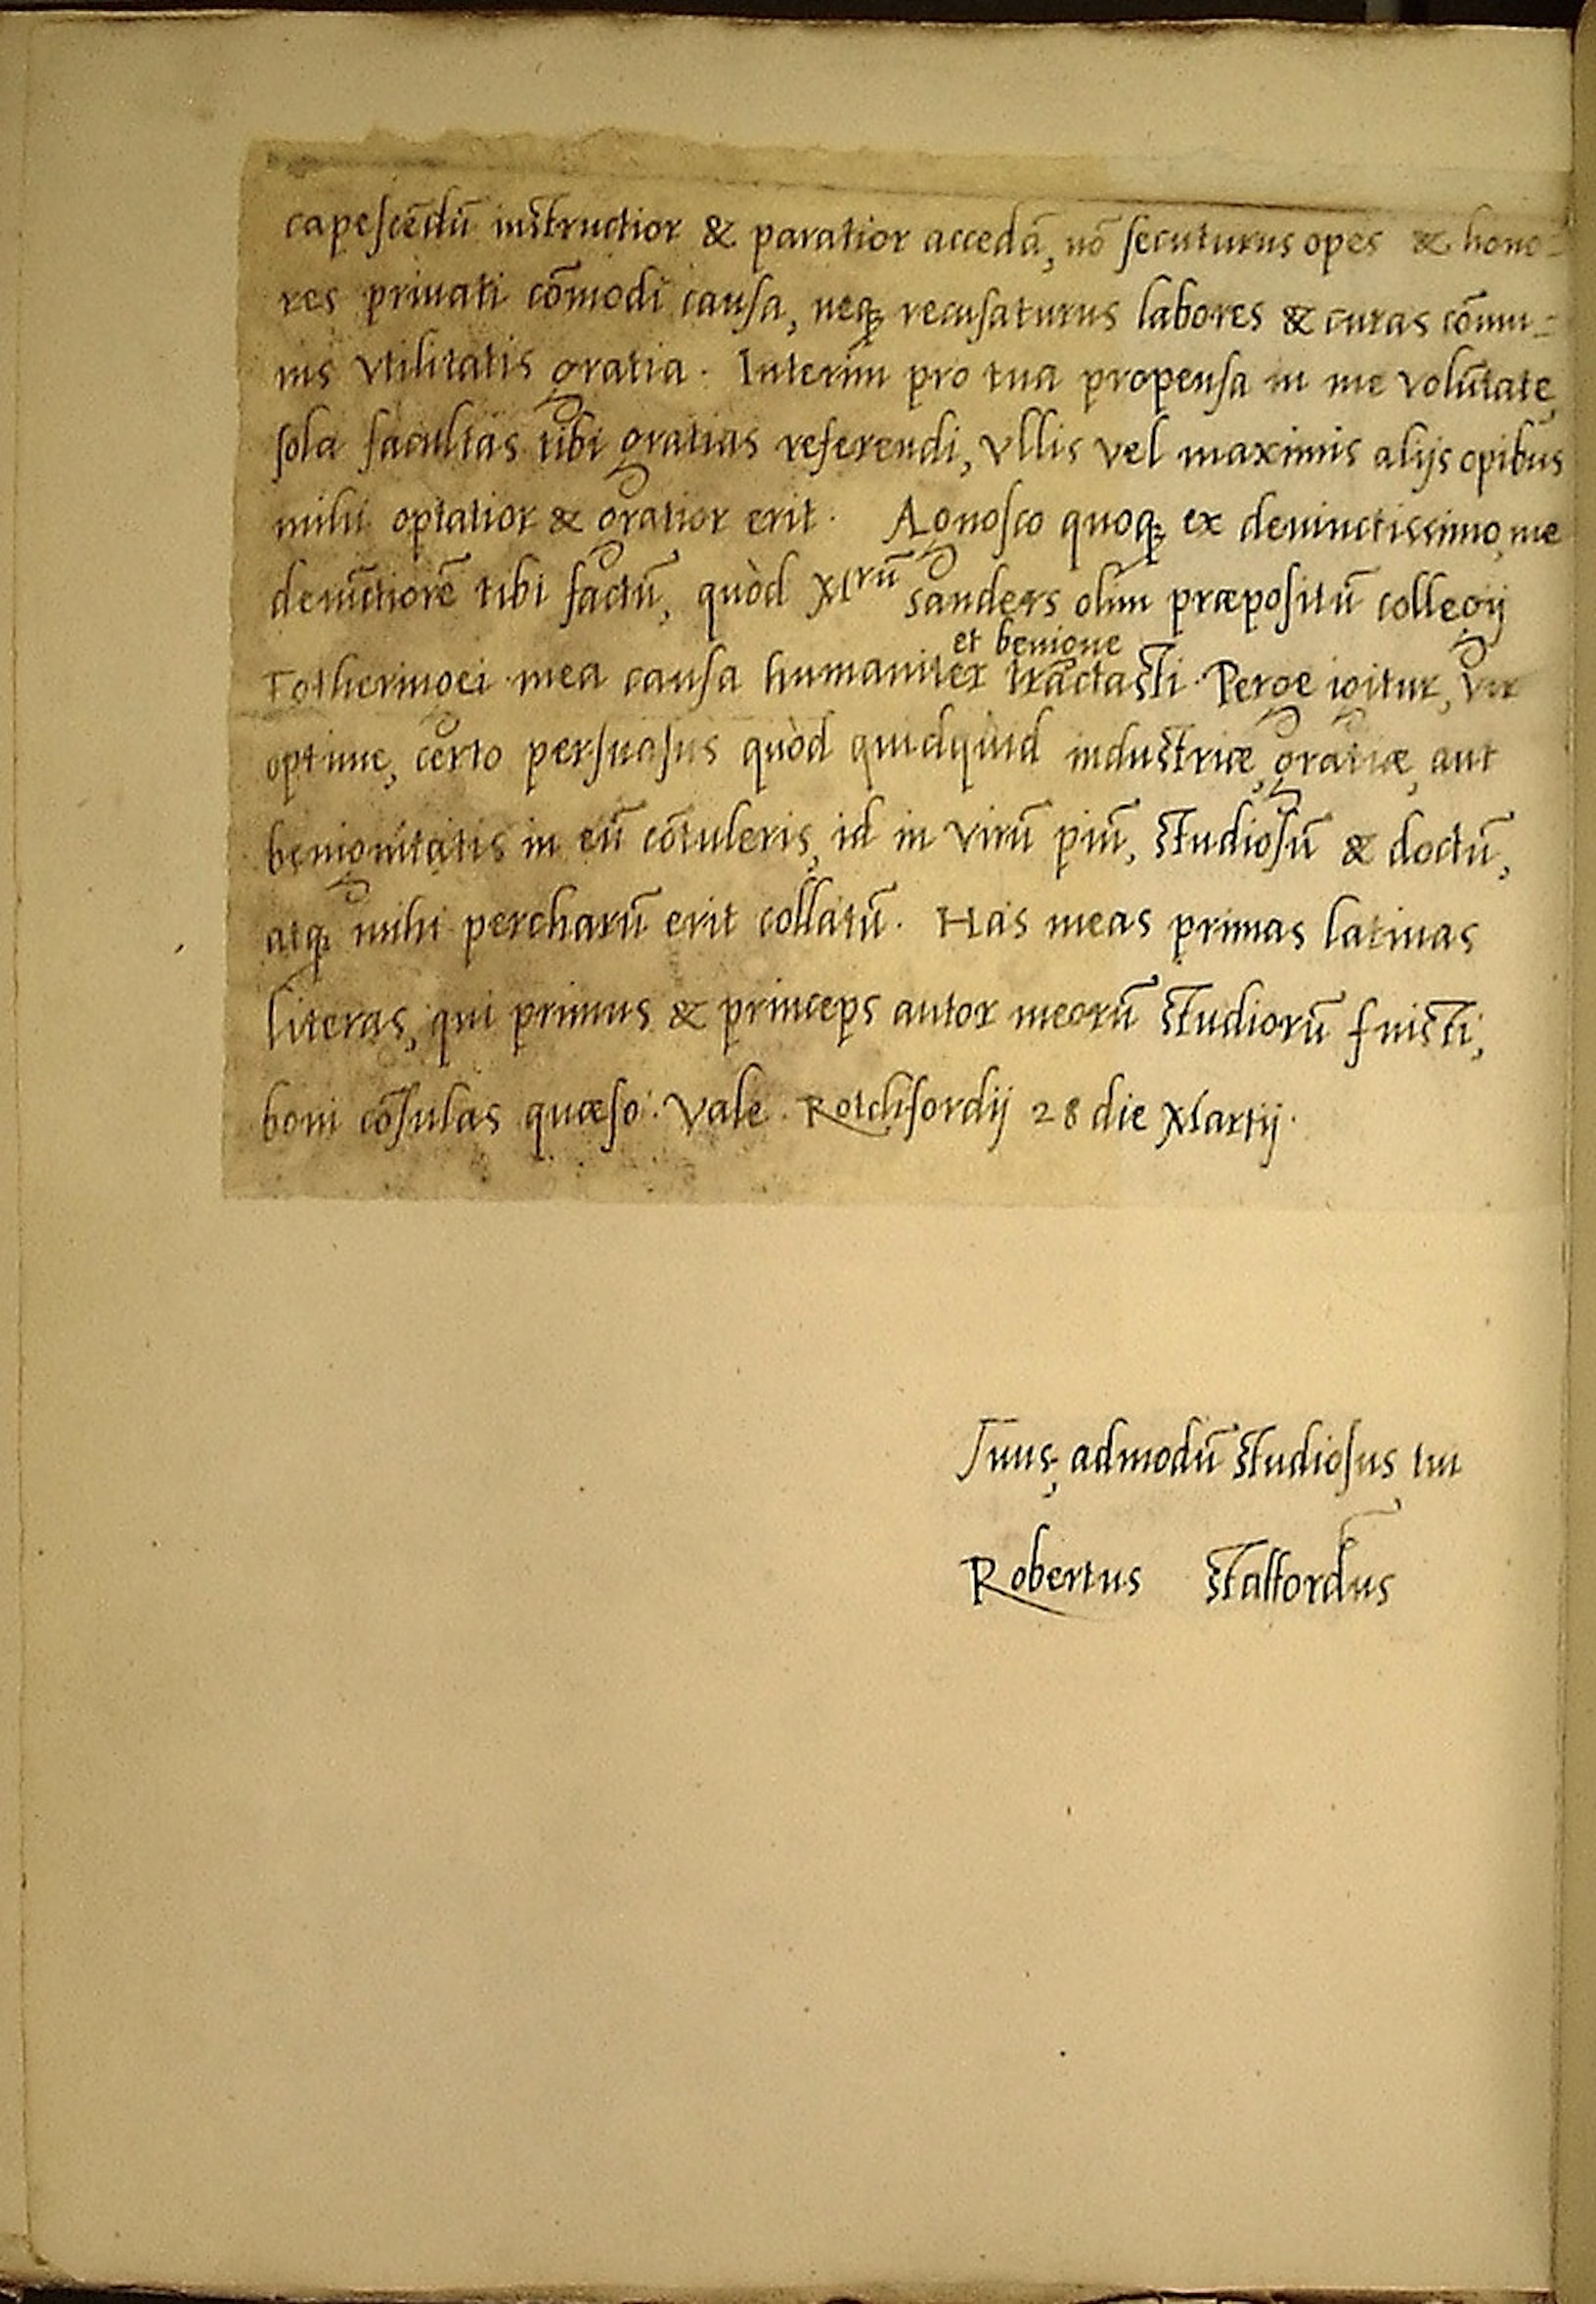 capeſcēdū instructior & paratior accedā, nō ſecuturus opes & hono=
res priuati cōmodi cauſa, neq; recuſaturus labores & curas cōmu=
nis vtilitatis gratia. Interim pro tua propenſa in me volūtate,
ſola facultas tibi gratias referendi, vllis vel maximis alijs opibus
mihi optatior & gratior erit. Agnoſco quoq; ex deuinctissimo, me
deuīctiorē tibi factū, quòd Mrū Sanders olim præpositū collegij
et benigne
Fotheringei mea cauſa humaniter tractasti. Perge igitur, vir
optime, certo perſuaſus quòd quidquid industriæ, gratiæ, aut
benignitatis in eū cōtuleris, id in virū piū, studioſū & doctū,
atq; mihi percharū erit collatū. Has meas primas latinas
literas, qui primus & princeps autor meorū studiorū fuisti,
boni cōſulas quæſo. Vale. Rotchfordij 28 die Martij.
Tuus, admodū studioſus tui
Robertus Staffordus